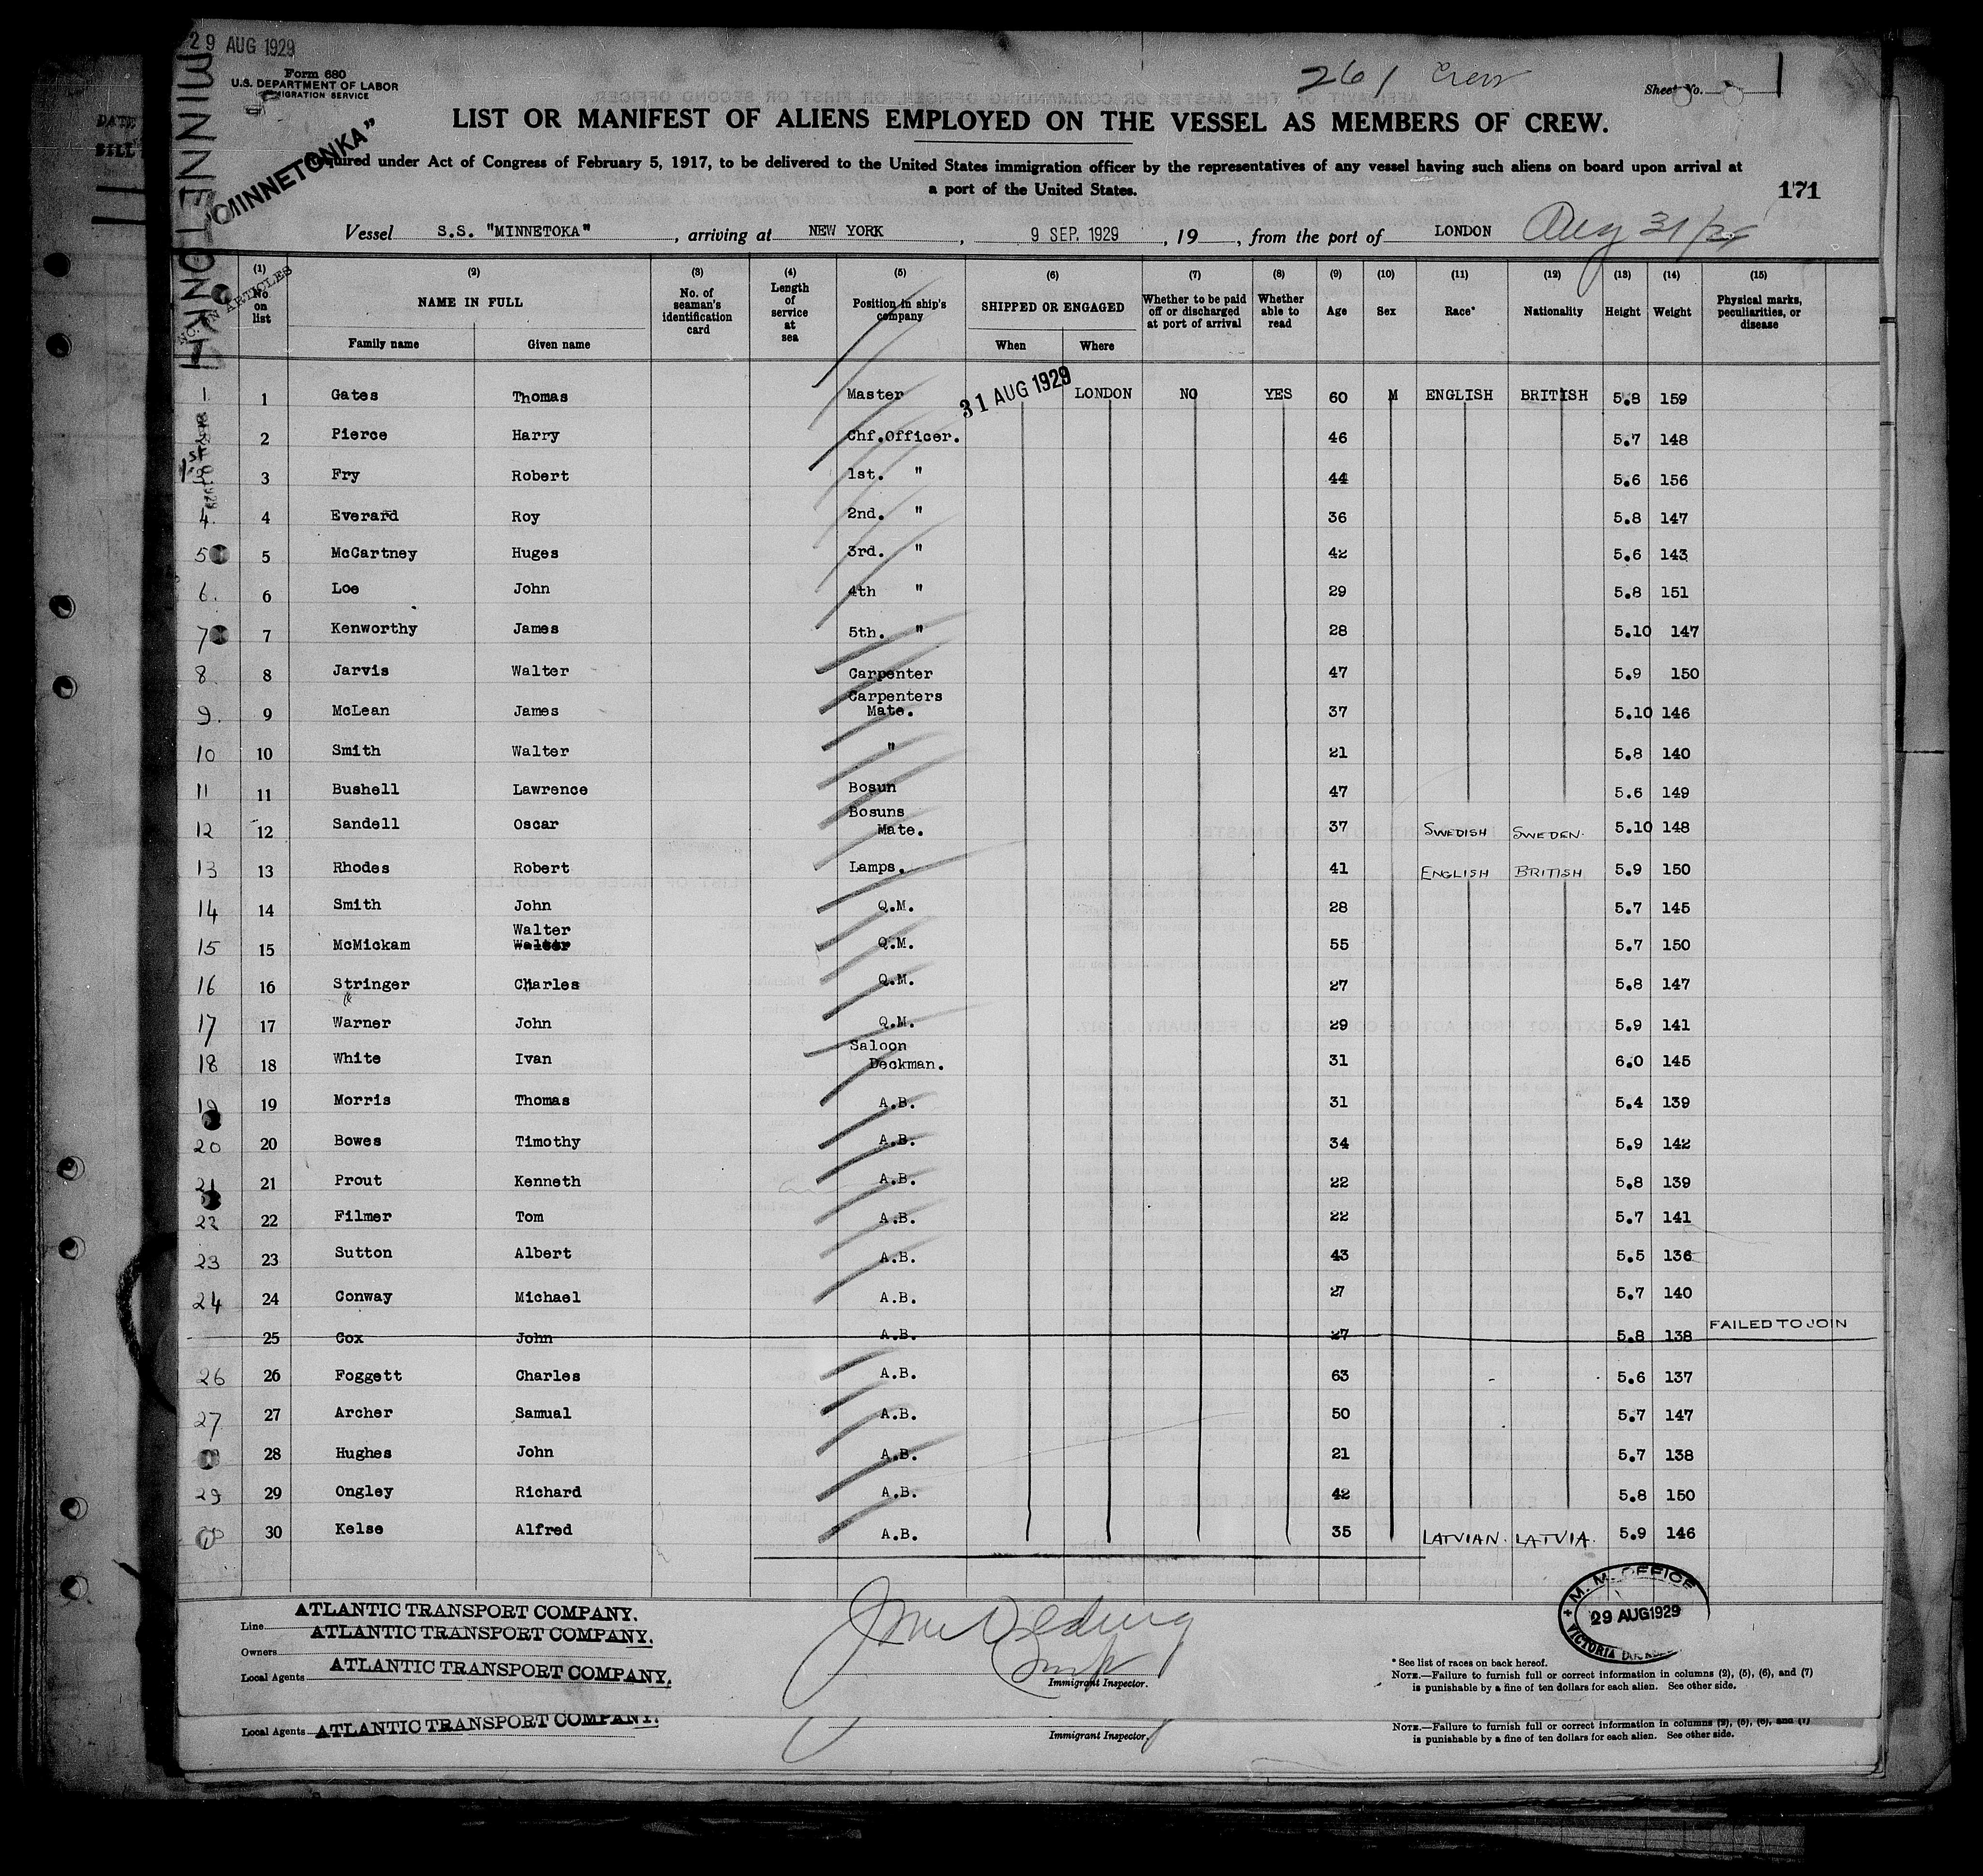 29 AUG 1929
MINNETONKA
Form 680
U.S. DEPARTMENT OF LABOR
IMMIGRATION SERVICE
261 Crew
Sheet No. 1
LIST OR MANIFEST OF ALIENS EMPLOYED ON THE VESSEL AS MEMBERS OF CREW.
"MINNETONKA"
Required under Act of Congress of February 5, 1917, to be delivered to the United States immigration officer by the representatives of any vessel having such aliens on board upon arrival at
a port of the United States.
171
Vessel S.S. "MINNETOKA", arriving at NEW YORK, 9 SEP. 1929, 19, from the port of LONDON Aug 31/29
NO. ON ARTICLES
(1) No on list (2) NAME IN FULL Family name Given name (3) No. of seaman's identification card (4) Length of service at sea (5) Position in ship's company (6) SHIPPED OR ENGAGED When Where (7) Whether to be paid off or discharged at port of arrival (8) Whether able to read (9) Age (10) Sex (11) Race* (12) Nationality (13) Height (14) Weight (15) Physical marks, peculiarities, or disease
1 1 Gates Thomas Master 31 AUG 1929 LONDON NO YES 60 M ENGLISH BRITISH 5.8 159
2 Pierce Harry Chf.Officer. 46 5.7 148
3 Fry Robert 1st. " 44 5.6 156
4. 4 Everard Roy 2nd. " 36 5.8 147
5 5 McCartney Huges 3rd. " 42 5.6 143
6. 6 Loe John 4th " 29 5.8 151
7 7 Kenworthy James 5th. " 28 5.10 147
8 8 Jarvis Walter Carpenter 47 5.9 150
9. 9 McLean James Carpenters Mate. 37 5.10 146
10 10 Smith Walter " 21 5.8 140
11 11 Bushell Lawrence Bosun 47 5.6 149
12 12 Sandell Oscar Bosuns Mate. 37 SWEDISH SWEDEN. 5.10 148
13 13 Rhodes Robert Lamps. 41 ENGLISH BRITISH 5.9 150
14 14 Smith John Q.M. 28 5.7 145
15 15 McMickam Walter Walter Q.M. 55 5.7 150
16 16 Stringer Charles Q.M. 27 5.8 147
17 17 Warner John Q.M. 29 5.9 141
18 18 White Ivan Saloon Deckman. 31 6.0 145
19 19 Morris Thomas A.B. 31 5.4 139
20 20 Bowes Timothy A.B. 34 5.9 142
21 21 Prout Kenneth A.B. 22 5.8 139
22 22 Filmer Tom A.B. 22 5.7 141
23 23 Sutton Albert A.B. 43 5.5 136
24 24 Conway Michael A.B. 27 5.7 140
25 Cox John A.B. 27 5.8 138 FAILED TO JOIN
26 26 Foggett Charles A.B. 63 5.6 137
27 27 Archer Samual A.B. 50 5.7 147
28 Hughes John A.B. 21 5.7 138
29 29 Ongley Richard A.B. 42 5.8 150
30 Kelse Alfred A.B. 35 LATVIAN. LATVIA. 5.9 146
Line ATLANTIC TRANSPORT COMPANY.
Owners ATLANTIC TRANSPORT COMPANY.
Local Agents ATLANTIC TRANSPORT COMPANY.
Immigrant Inspector.
M. M. OFFICE
29 AUG 1929
VICTORIA
* See list of races on back hereof.
NOTE.—Failure to furnish full or correct information in columns (2), (5), (6), and (7)
is punishable by a fine of ten dollars for each alien. See other side.
Local Agents ATLANTIC TRANSPORT COMPANY.
Immigrant Inspector.
NOTE.—Failure to furnish full or correct information in columns (2), (5), (6), and (7)
is punishable by a fine of ten dollars for each alien. See other side.